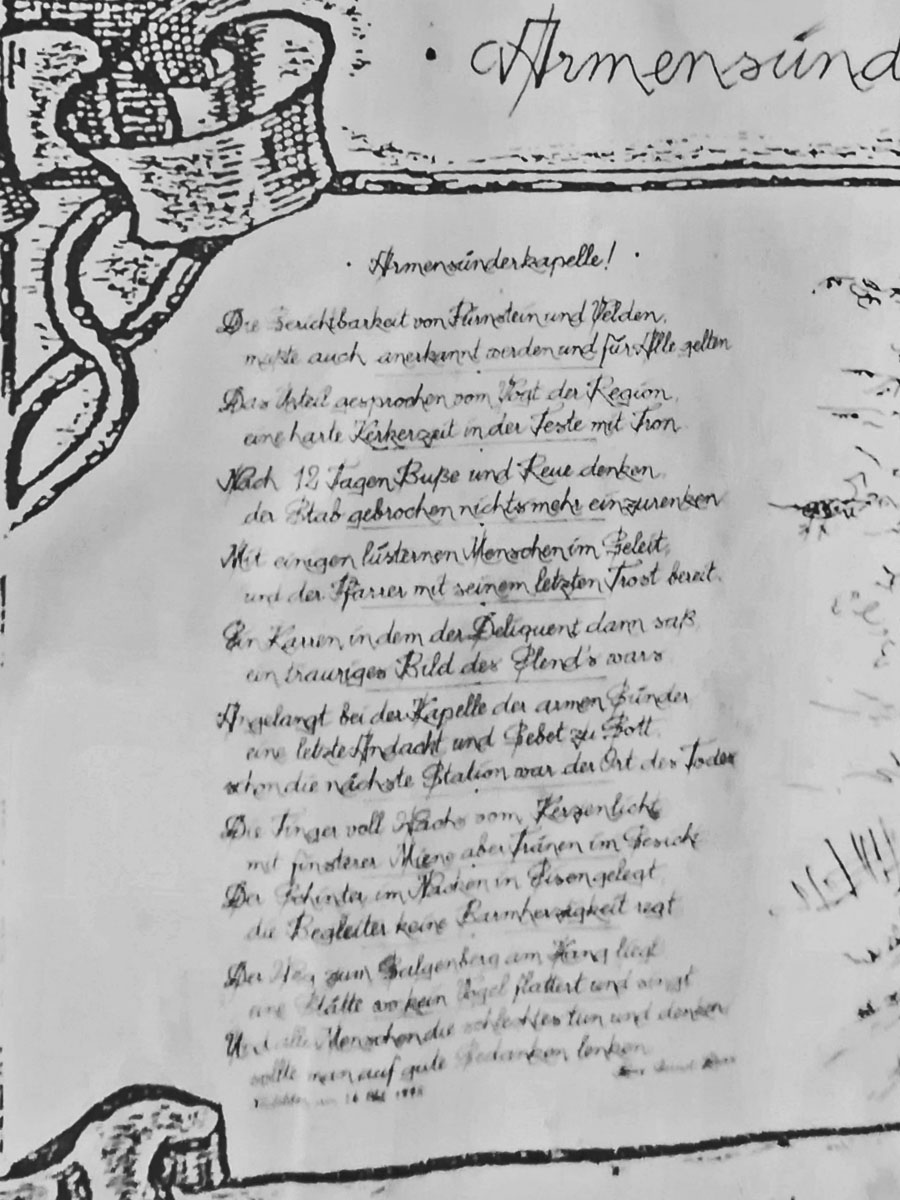 · Armensünd
· Armensünderkapelle! ·
Die Gerichtbarkeit von Fürnstein und Velden,
mußte auch anerkannt werden und für Alle gelten
Das Urteil gesprochen vom Vogt der Region,
eine harte Kerkerzeit in der Feste mit Fron
Nach 12 Tagen Buße und Reue denken,
der Stab gebrochen nichts mehr einzurenken
Mit einigen lüsternen Menschen im Geleit,
und der Pfarrer mit seinem letzten Trost bereit.
Ein Karren in dem der Deliquent dann saß,
ein trauriges Bild des Elend's wars
Angelangt bei der Kapelle der armen Sünder
eine letzte Andacht und Gebet zu Gott
schon die nächste Station war der Ort des Todes
Die Finger voll Wachs vom Kerzenlicht
mit finsterer Miene aber Tränen im Gesicht
Der Schinter im Nacken in Eisen gelegt
die Begleiter keine Barmherzigkeit regt
Der Weg zum Galgenberg am Hang liegt
eine Stätte wo kein Vogel flattert und singt
Und alle Menschen die schlechtes tun und denken
sollte man auf gute Gedanken lenken